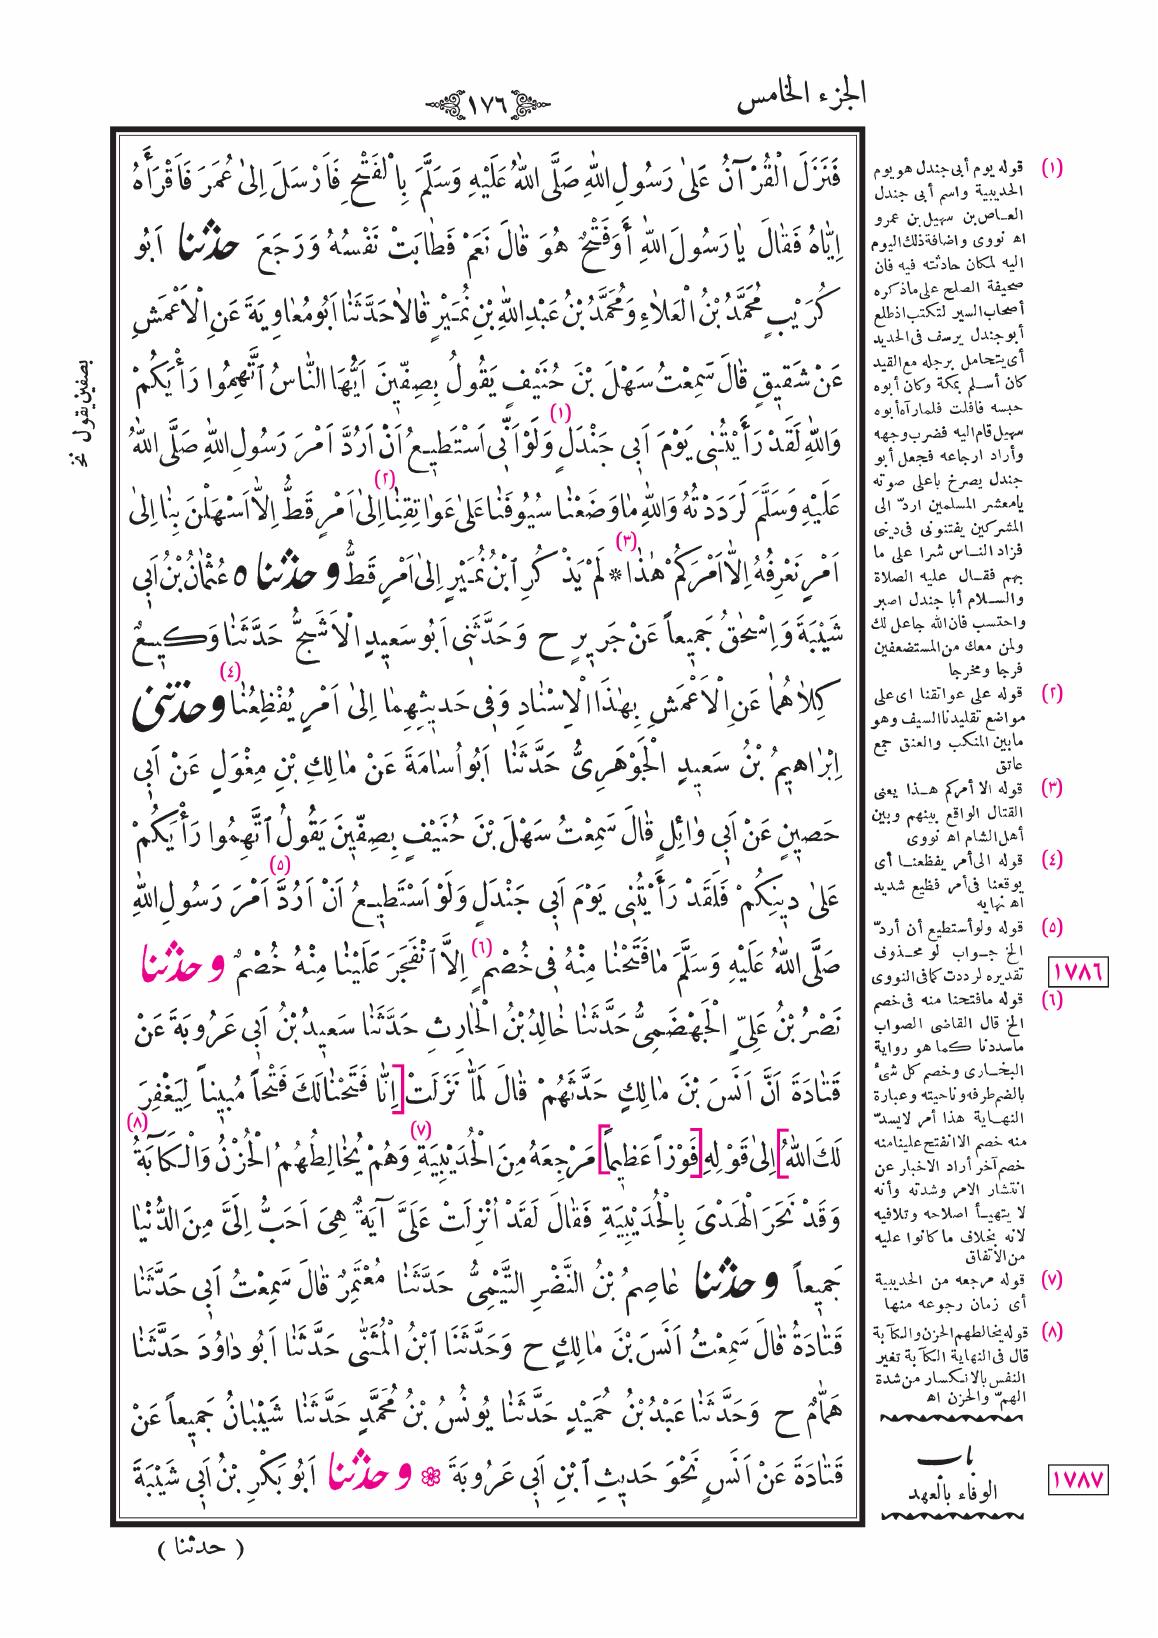 الجزء الخامس
١٧٦
فَنَزَلَ الْقُرْآنُ عَلَى رَسُولِ اللهِ صَلَّى اللهُ عَلَيْهِ وَسَلَّمَ بِالْفَتْحِ فَاَرْسَلَ اِلىٰ عُمَرَ فَاَقْرَأَهُ
اِيَّاهُ فَقَالَ يَا رَسُولَ اللهِ أَوَفَتْحٌ هُوَ قَالَ نَعَمْ فَطَابَتْ نَفْسُهُ وَرَجَعَ حدثنا اَبُو
كُرَيْبٍ مُحَمَّدُ بْنُ الْعَلَاءِ وَمُحَمَّدُ بْنُ عَبْدِ اللهِ بْنِ نُمَيْرٍ قَالَا حَدَّثَنَا اَبُو مُعَاوِيَةَ عَنِ الْاَعْمَشِ
عَنْ شَقِيقٍ قَالَ سَمِعْتُ سَهْلَ بْنَ حُنَيْفٍ يَقُولُ بِصِفِّينَ اَيُّهَا النَّاسُ اتَّهِمُوا رَأْيَكُمْ
وَاللهِ لَقَدْ رَأَيْتُنِي يَوْمَ اَبِي جَنْدَلٍ (١) وَلَوْ اَنِّي اَسْتَطِيعُ اَنْ اَرُدَّ اَمْرَ رَسُولِ اللهِ صَلَّى اللهُ
عَلَيْهِ وَسَلَّمَ لَرَدَدْتُهُ وَاللهِ مَا وَضَعْنَا سُيُوفَنَا عَلىٰ عَوَاتِقِنَا (٢) اِلىٰ اَمْرٍ قَطُّ اِلاَّ اَسْهَلْنَ بِنَا اِلىٰ
اَمْرٍ نَعْرِفُهُ اِلاَّ اَمْرَكُمْ هٰذَا (٣) * لَمْ يَذْكُرِ ابْنُ نُمَيْرٍ اِلىٰ اَمْرٍ قَطُّ وحدثناه عُثْمَانُ بْنُ اَبِي
شَيْبَةَ وَاِسْحٰقُ جَمِيعاً عَنْ جَرِيرٍ ح وَحَدَّثَنِي اَبُو سَعِيدٍ الْاَشَجُّ حَدَّثَنَا وَكِيعٌ
كِلَاهُمَا عَنِ الْاَعْمَشِ بِهٰذَا الْاِسْنَادِ وَفِي حَدِيثِهِمَا اِلىٰ اَمْرٍ يُفْظِعُنَا (٤) وحدثني
اِبْرَاهِيمُ بْنُ سَعِيدٍ الْجَوْهَرِيُّ حَدَّثَنَا اَبُو اُسَامَةَ عَنْ مَالِكِ بْنِ مِغْوَلٍ عَنْ اَبِي
حَصِينٍ عَنْ اَبِي وَائِلٍ قَالَ سَمِعْتُ سَهْلَ بْنَ حُنَيْفٍ بِصِفِّينَ يَقُولُ اتَّهِمُوا رَأْيَكُمْ
عَلىٰ دِينِكُمْ فَلَقَدْ رَأَيْتُنِي يَوْمَ اَبِي جَنْدَلٍ وَلَوْ اَسْتَطِيعُ اَنْ اَرُدَّ (٥) اَمْرَ رَسُولِ اللهِ
صَلَّى اللهُ عَلَيْهِ وَسَلَّمَ مَا فَتَحْنَا مِنْهُ فِي خُصْمٍ (٦) اِلاَّ انْفَجَرَ عَلَيْنَا مِنْهُ خُصْمٌ وحدثنا
نَصْرُ بْنُ عَلِيٍّ الْجَهْضَمِيُّ حَدَّثَنَا خَالِدُ بْنُ الْحَارِثِ حَدَّثَنَا سَعِيدُ بْنُ اَبِي عَرُوبَةَ عَنْ
قَتَادَةَ اَنَّ اَنَسَ بْنَ مَالِكٍ حَدَّثَهُمْ قَالَ لَمَّا نَزَلَتْ [اِنَّا فَتَحْنَا لَكَ فَتْحاً مُبِيناً لِيَغْفِرَ
لَكَ اللهُ] اِلىٰ قَوْلِهِ [فَوْزاً عَظِيماً] مَرْجِعَهُ مِنَ الْحُدَيْبِيَةِ (٧) وَهُمْ يُخَالِطُهُمُ الْحُزْنُ وَالْكَآبَةُ (٨)
وَقَدْ نَحَرَ الْهَدْىَ بِالْحُدَيْبِيَةِ فَقَالَ لَقَدْ اُنْزِلَتْ عَلَيَّ آيَةٌ هِىَ اَحَبُّ اِلَيَّ مِنَ الدُّنْيَا
جَمِيعاً وحدثنا عَاصِمُ بْنُ النَّضْرِ التَّيْمِيُّ حَدَّثَنَا مُعْتَمِرٌ قَالَ سَمِعْتُ اَبِي حَدَّثَنَا
قَتَادَةُ قَالَ سَمِعْتُ اَنَسَ بْنَ مَالِكٍ ح وَحَدَّثَنَا ابْنُ الْمُثَنَّى حَدَّثَنَا اَبُو دَاوُدَ حَدَّثَنَا
هَمَّامٌ ح وَحَدَّثَنَا عَبْدُ بْنُ حُمَيْدٍ حَدَّثَنَا يُونُسُ بْنُ مُحَمَّدٍ حَدَّثَنَا شَيْبَانُ جَمِيعاً عَنْ
قَتَادَةَ عَنْ اَنَسٍ نَحْوَ حَدِيثِ ابْنِ اَبِي عَرُوبَةَ وحدثنا اَبُو بَكْرِ بْنُ اَبِي شَيْبَةَ
( حدثنا )
بصفين يقول نخ
(١) قوله يوم أبى جندل هو يوم
الحديبية واسم أبى جندل
العاص بن سهيل بن عمرو
اه نووى واضافة ذلك اليوم
اليه لمكان حادثته فيه فان
صحيفة الصلح على ماذكره
أصحاب السير لتكتب اذ طلع
أبو جندل يرسف فى الحديد
أى يتحامل برجله مع القيد
كان أسلم بمكة وكان أبوه
حبسه فافلت فلما رآه أبوه
سهيل قام اليه فضرب وجهه
وأراد ارجاعه فجعل أبو
جندل يصرخ باعلى صوته
يا معشر المسلمين اردّ الى
المشركين يفتنونى فى دينى
فزاد الناس شرا على ما
بهم فقال عليه الصلاة
والسلام أبا جندل اصبر
واحتسب فان الله جاعل لك
ولمن معك من المستضعفين
فرجا ومخرجا
(٢) قوله على عواتقنا اى على
مواضع تقليدنا السيف وهو
مابين المنكب والعنق جمع
عاتق
(٣) قوله الا أمركم هذا يعنى
القتال الواقع بينهم وبين
أهل الشام اه نووى
(٤) قوله الى أمر يفظعنا أى
يوقعنا فى أمر فظيع شديد
اه نهايه
(٥) قوله ولو أستطيع أن أردّ
الخ جواب لو محذوف
تقديره لرددت كما فى النووى
١٧٨٦
(٦) قوله ما فتحنا منه فى خصم
الخ قال القاضى الصواب
ماسددنا كما هو رواية
البخارى وخصم كل شىء
بالضم طرفه وناحيته وعبارة
النهاية هذا أمر لا يسدّ
منه خصم الا انفتح علينا منه
خصم آخر أراد الاخبار عن
انتشار الامر وشدته وأنه
لا يتهيأ اصلاحه وتلافيه
لانه بخلاف ما كانوا عليه
من الاتفاق
(٧) قوله مرجعه من الحديبية
أى زمان رجوعه منها
(٨) قوله يخالطهم الحزن والكآبة
قال فى النهاية الكآبة تغير
النفس بالانكسار من شدة
الهمّ والحزن اه
باب
الوفاء بالعهد
١٧٨٧